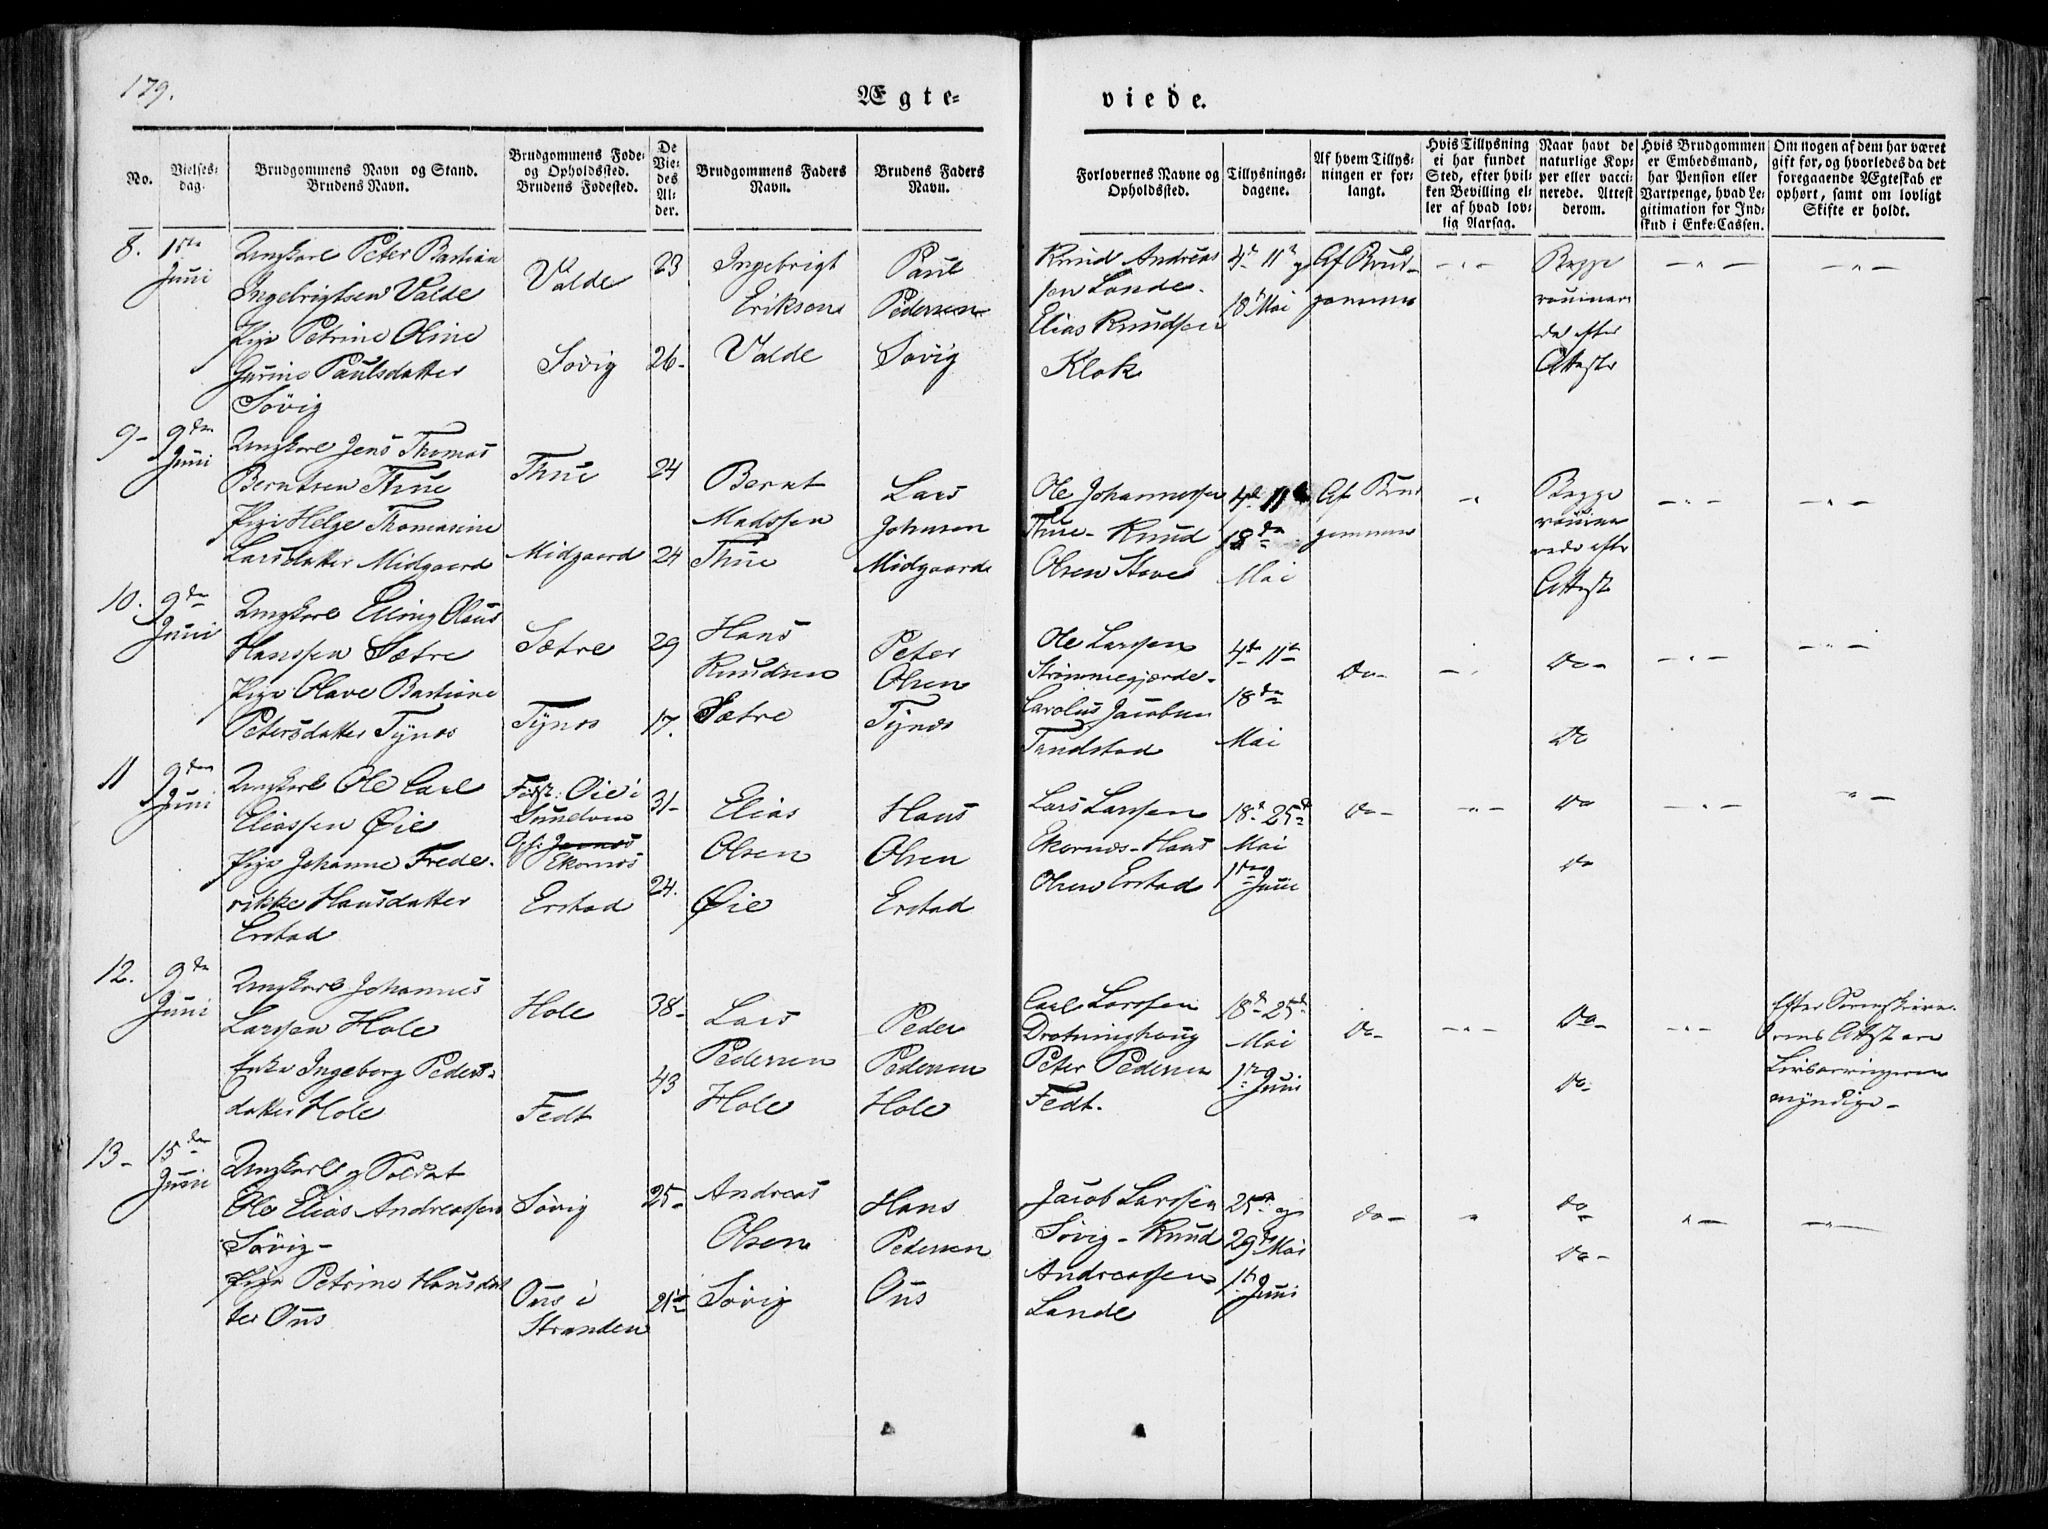 179.
Ægte-
viede.
No.
Vielses-
dag.
Brudgommens Navn og Stand.
Brudens Navn.
Brudgommens Føde-
og Opholdssted.
Brudens Fødested.
De
Vie-
des
Al-
der.
Brudgommens Faders
Navn.
Brudens Faders
Navn.
Forlovernes Navne og
Opholdssted.
Tillysnings-
dagene.
Af hvem Tillys-
ningen er for-
langt.
Hvis Tillysning
ei har fundet
Sted, efter hvil-
ken Bevilling el-
ler af hvad lov-
lig Aarsag.
Naar havt de
naturlige Kop-
per eller vacci-
nerede. Attest
derom.
Hvis Brudgommen
er Embedsmand,
har Pension eller
Vartpenge, hvad Le-
gitimation for Ind-
skud i Enke-Cassen.
Om nogen af dem har været
gift før, og hvorledes da det
foregaaende Ægteskab er
ophørt, samt om lovligt
Skifte er holdt.
8.
Juni
Ungkarl Peter Bastian
Ingebrigtsen Valde
Pige Petrine Oline
Gurine Paulsdatter
Søvig
Valde
Søvig
23
26-
Ingebrigt
Eriksen
Valde
Paul
Pedersen
Søvig
Knud Andreas
sen Lande.
Elias Knudsen
Klok
4de 11te og
18de Mai
Af Brud-
gommen
Begge
vaccine-
rede efter
Attester
9-
9den
Juni
Ungkarl Jens Thomas
Berntsen Thue
Pige Helge Thomasine
Larsdatter Midgaard
Thue
Midgaard
24
24
Bernt
Madssen
Thue
Lars
Johnsen
Midgaard
Ole Johannessen
Thue- Knud
Olsen Stave
4de 11te
18de
Mai
Af Brud
gommen
Begge
vaccine
rede efter
Attest
10.
9de
Juni
Ungkarl Elling Olaus
Hanssen Sætre
Pige Olave Bastiane
Petersdatter Tynæs
Sætre
Tynæs
29
17.
Hans
Knudsen
Sætre
Peter
Olsen
Tynæs
Ole Larssen
Strømmegjerde-
Carolus Jacobsen
Tandstad
4de 11te
18de
Mai
Do-
Do-
Do
11
9den
Juni
Ungkarl Ole Carl
Eliassen Øie
Pige Johanne Frede-
rikke Hansdatter
Erstad
Født: Øie i
Sundelven
Ekornæs
Erstad
31-
24.
Elias
Olsen
Øie
Hans
Olsen
Erstad
Lars Larssen
Ekornæs- Hans
Olsen Erstad
18de 25de
Mai
1ste Juni
Do-
Do
do
12.
9de
Juni
Ungkarl Johannes
Larssen Hole
Enke Ingeborg Peders-
datter Hole
Hole
Fedt
38-
43
Lars
Pedersen
Hole
Peder
Pedersen
Hole
Carl Larssen
Drotninghoug
Peter Pedersen
Fedt.
18de 25de
Mai
1ste Juni
Do-
Do-
Do-
Efter Sorenskrive-
rens Attest ere
Livsarvingerne
myndige-
13-
15den
Juni
Ungkarl og Soldat
Ole Elias Andreassen
Søvig-
Pige Petrine Hansdat
ter Ous
Søvig
Ous i
Stranden
25-
21½
Andreas
Olsen
Søvig
Hans
Pedersen
Ous
Jacob Larssen
Søvig- Knud
Andreassen
Lande
25de og
29de Mai
1ste Juni
do-
do
Do-